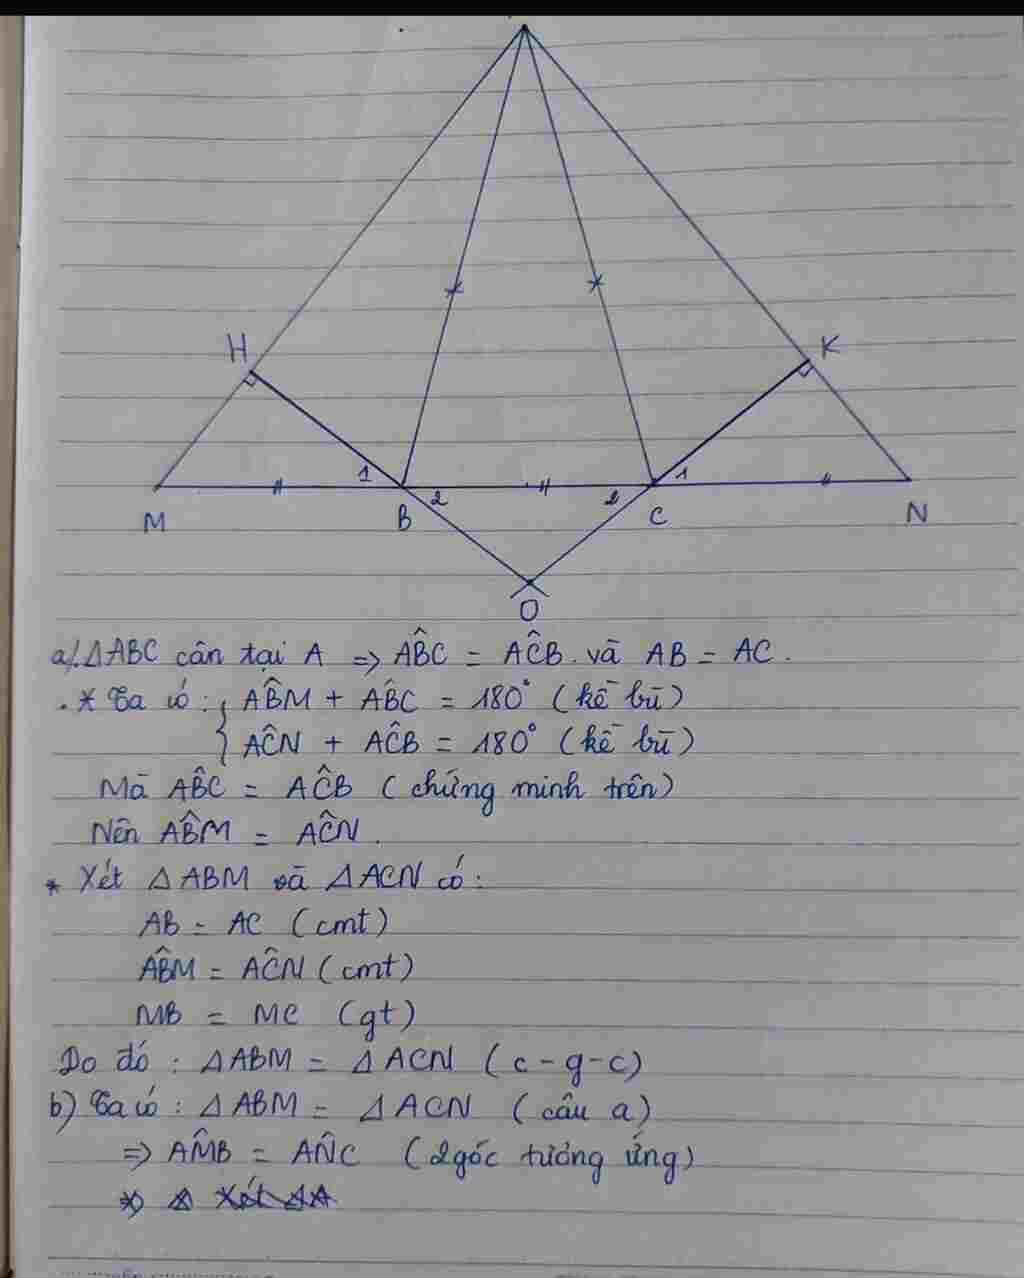 H
K
1
1
2
2
M
B
C
N
O
a). ΔABC cân tại A => AB̂C = AĈB. và AB = AC.
.* Ta có : { AB̂M + AB̂C = 180° (kề bù)
AĈN + AĈB = 180° (kề bù)
Mà AB̂C = AĈB (chứng minh trên)
Nên AB̂M = AĈN.
* Xét ΔABM và ΔACN có:
AB = AC (cmt)
AB̂M = AĈN (cmt)
MB = MC (gt)
Do đó : ΔABM = ΔACN (c-g-c)
b) Ta có : ΔABM = ΔACN (câu a)
=> AM̂B = AN̂C (2góc tưởng ứng)